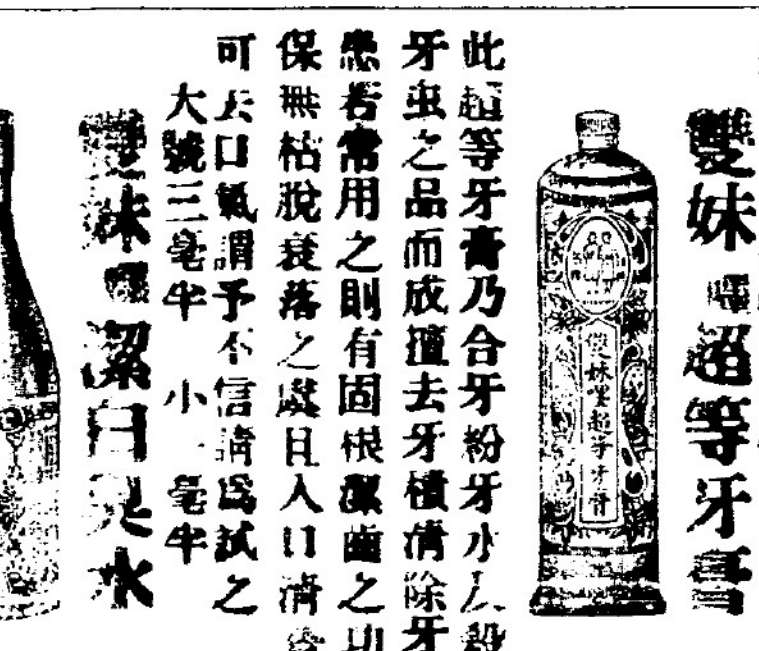 雙妹嚜超等牙膏
雙妹嚜超等牙膏
此超等牙膏乃合牙粉牙水及殺
牙虫之品而成擅去牙積清除牙
患若常用之則有固根潔齒之功
保無枯脫衰落之虞且入口清
可去口氣謂予不信請爲試之
大號三毫半 小 毫半
雙妹嚜潔白 水